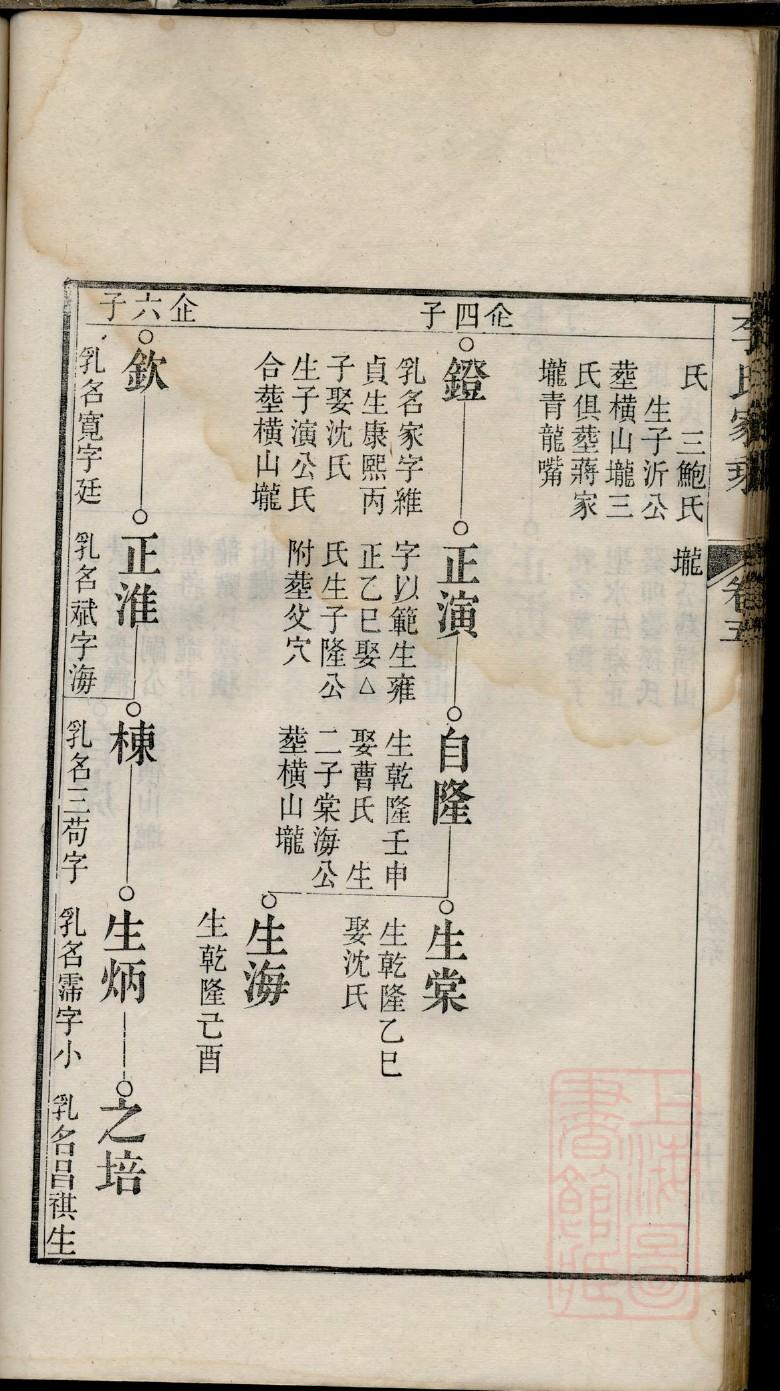 李氏家
卷五
氏　三鮑氏
生子沂公
塟橫山壠三
氏俱塟蔣家
壠青龍嘴
壠
企四子
鐙
乳名家字維
貞生康熙丙
子娶沈氏
生子演公氏
合塟橫山壠
正演
字以範生雍
正乙巳娶△
氏生子隆公
附塟父穴
自隆
生乾隆壬申
娶曹氏　生
二子棠海公
塟橫山壠
生棠
生乾隆乙巳
娶沈氏
生海
生乾隆己酉
企六子
欽
乳名寬字廷
正淮
乳名斌字海
棟
乳名三苟字
生炳
乳名霈字小
之培
乳名昌祺生
上海圖
書館藏